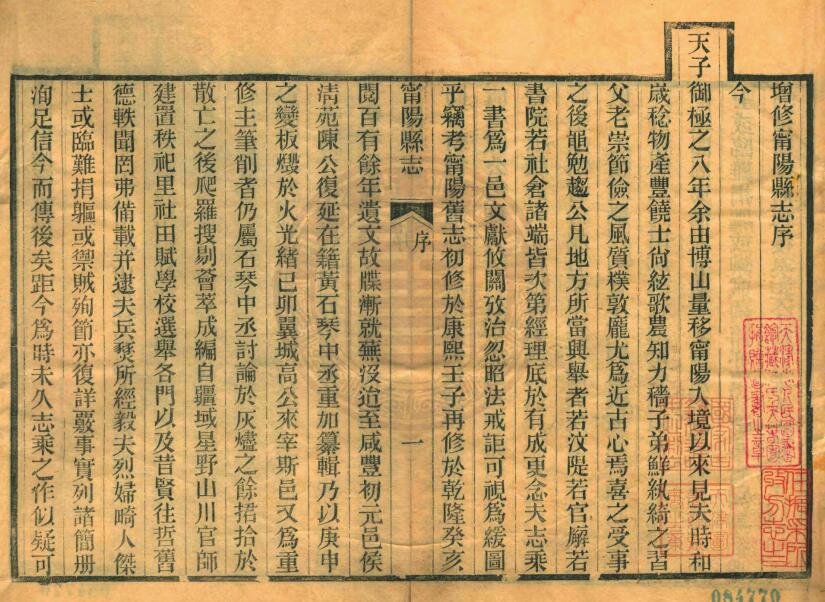 增修甯陽縣志序
今
天子御極之八年余由博山量移甯陽入境以來見夫時和
歲稔物產豐饒士尚絃歌農知力穡子弟鮮紈綺之習
父老崇節儉之風質樸敦龐尤為近古心焉喜之受事
之後黽勉趨公凡地方所當興舉者若汶隄若官廨若
書院若社倉諸端皆次第經理底於有成更念夫志乘
一書為一邑文獻攸關攷治忽昭法戒詎可視為緩圖
乎竊考甯陽舊志初修於康熙壬子再修於乾隆癸亥
甯陽縣志
序
一
閱百有餘年遺文故牒漸就蕪沒迨至咸豐初元邑侯
清苑陳公復延在籍黃石琴中丞重加纂輯乃以庚申
之變板燬於火光緒己卯翼城高公來宰斯邑又為重
修主筆削者仍屬石琴中丞討論於灰燼之餘捃拾於
散亡之後爬羅搜剔薈萃成編自疆域星野山川官師
建置秩祀里社田賦學校選舉各門以及昔賢往哲舊
德軼聞罔弗備載并逮夫兵燹所經毅夫烈婦畸人傑
士或臨難捐軀或禦賊殉節亦復詳覈事實列諸簡冊
洵足信今而傳後矣距今為時未久志乘之作似疑可
084770